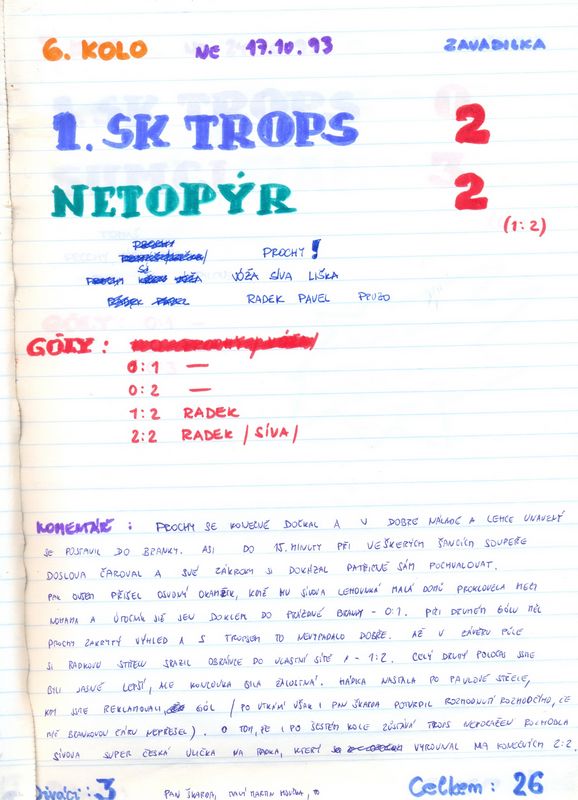 6. KOLO NE 17.10.93 ZAVADILKA
1. SK TROPS 2
NETOPÝR 2
(1:2)
PROCHY!
VÓŽA SÍVA LIŠKA
RADEK PAVEL PRUZO
GÓLY:
0:1 —
0:2 —
1:2 RADEK
2:2 RADEK /SÍVA/
KOMENTÁŘ: PROCHY SE KONEČNĚ DOČKAL A V DOBRÉ NÁLADĚ A LEHCE UNAVENÝ
SE POSTAVIL DO BRANKY. ASI DO 15. MINUTY PŘI VEŠKERÝCH ŠANCÍCH SOUPEŘE
DOSLOVA ČAROVAL A SVÉ ZÁKROKY SI DOKÁZAL PATŘIČNĚ SÁM POCHVALOVAT.
PAK OVŠEM PŘIŠEL OSUDNÝ OKAMŽIK, KDYŽ MU SÍVOVA LEHOUNKÁ MALÁ DOMŮ PROKLOUZLA MEZI
NOHAMA A ÚTOČNÍK ŠEL JEN DOKLEPL DO PRÁZDNÉ BRANKY - 0:1. PŘI DRUHÉM GÓLU MĚL
PROCHY ZAKRYTÝ VÝHLED A S TROPSEM TO NEVYPADALO DOBŘE. AŽ V ZÁVĚRU PŮLE
SI RADKOVU STŘELU SRAZIL OBRÁNCE DO VLASTNÍ SÍTĚ - 1:2. CELÝ DRUHÝ POLOČAS JSME
BYLI JASNĚ LEPŠÍ, ALE KONCOVKA BYLA ŽALOSTNÁ. HÁDKA NASTALA PO PAVLOVĚ STŘELE,
KDY JSME REKLAMOVALI GÓL /PO UTKÁNÍ VŠAK I PAN ŠKARDA POTVRDIL ROZHODNUTÍ ROZHODČÍHO, ŽE
MÍČ BRANKOVOU ČÁRU NEPŘEŠEL). O TOM, ŽE I PO ŠESTÉM KOLE ZŮSTÁVÁ TROPS NEPORAŽEN ROZHODLA
SÍVOVA SUPER ČESKÁ ULIČKA NA RADKA, KTERÝ VYROVNAL NA KONEČNÝCH 2:2.
Diváci: 3 PAN ŠKARDA, MARTIN Celkem: 26